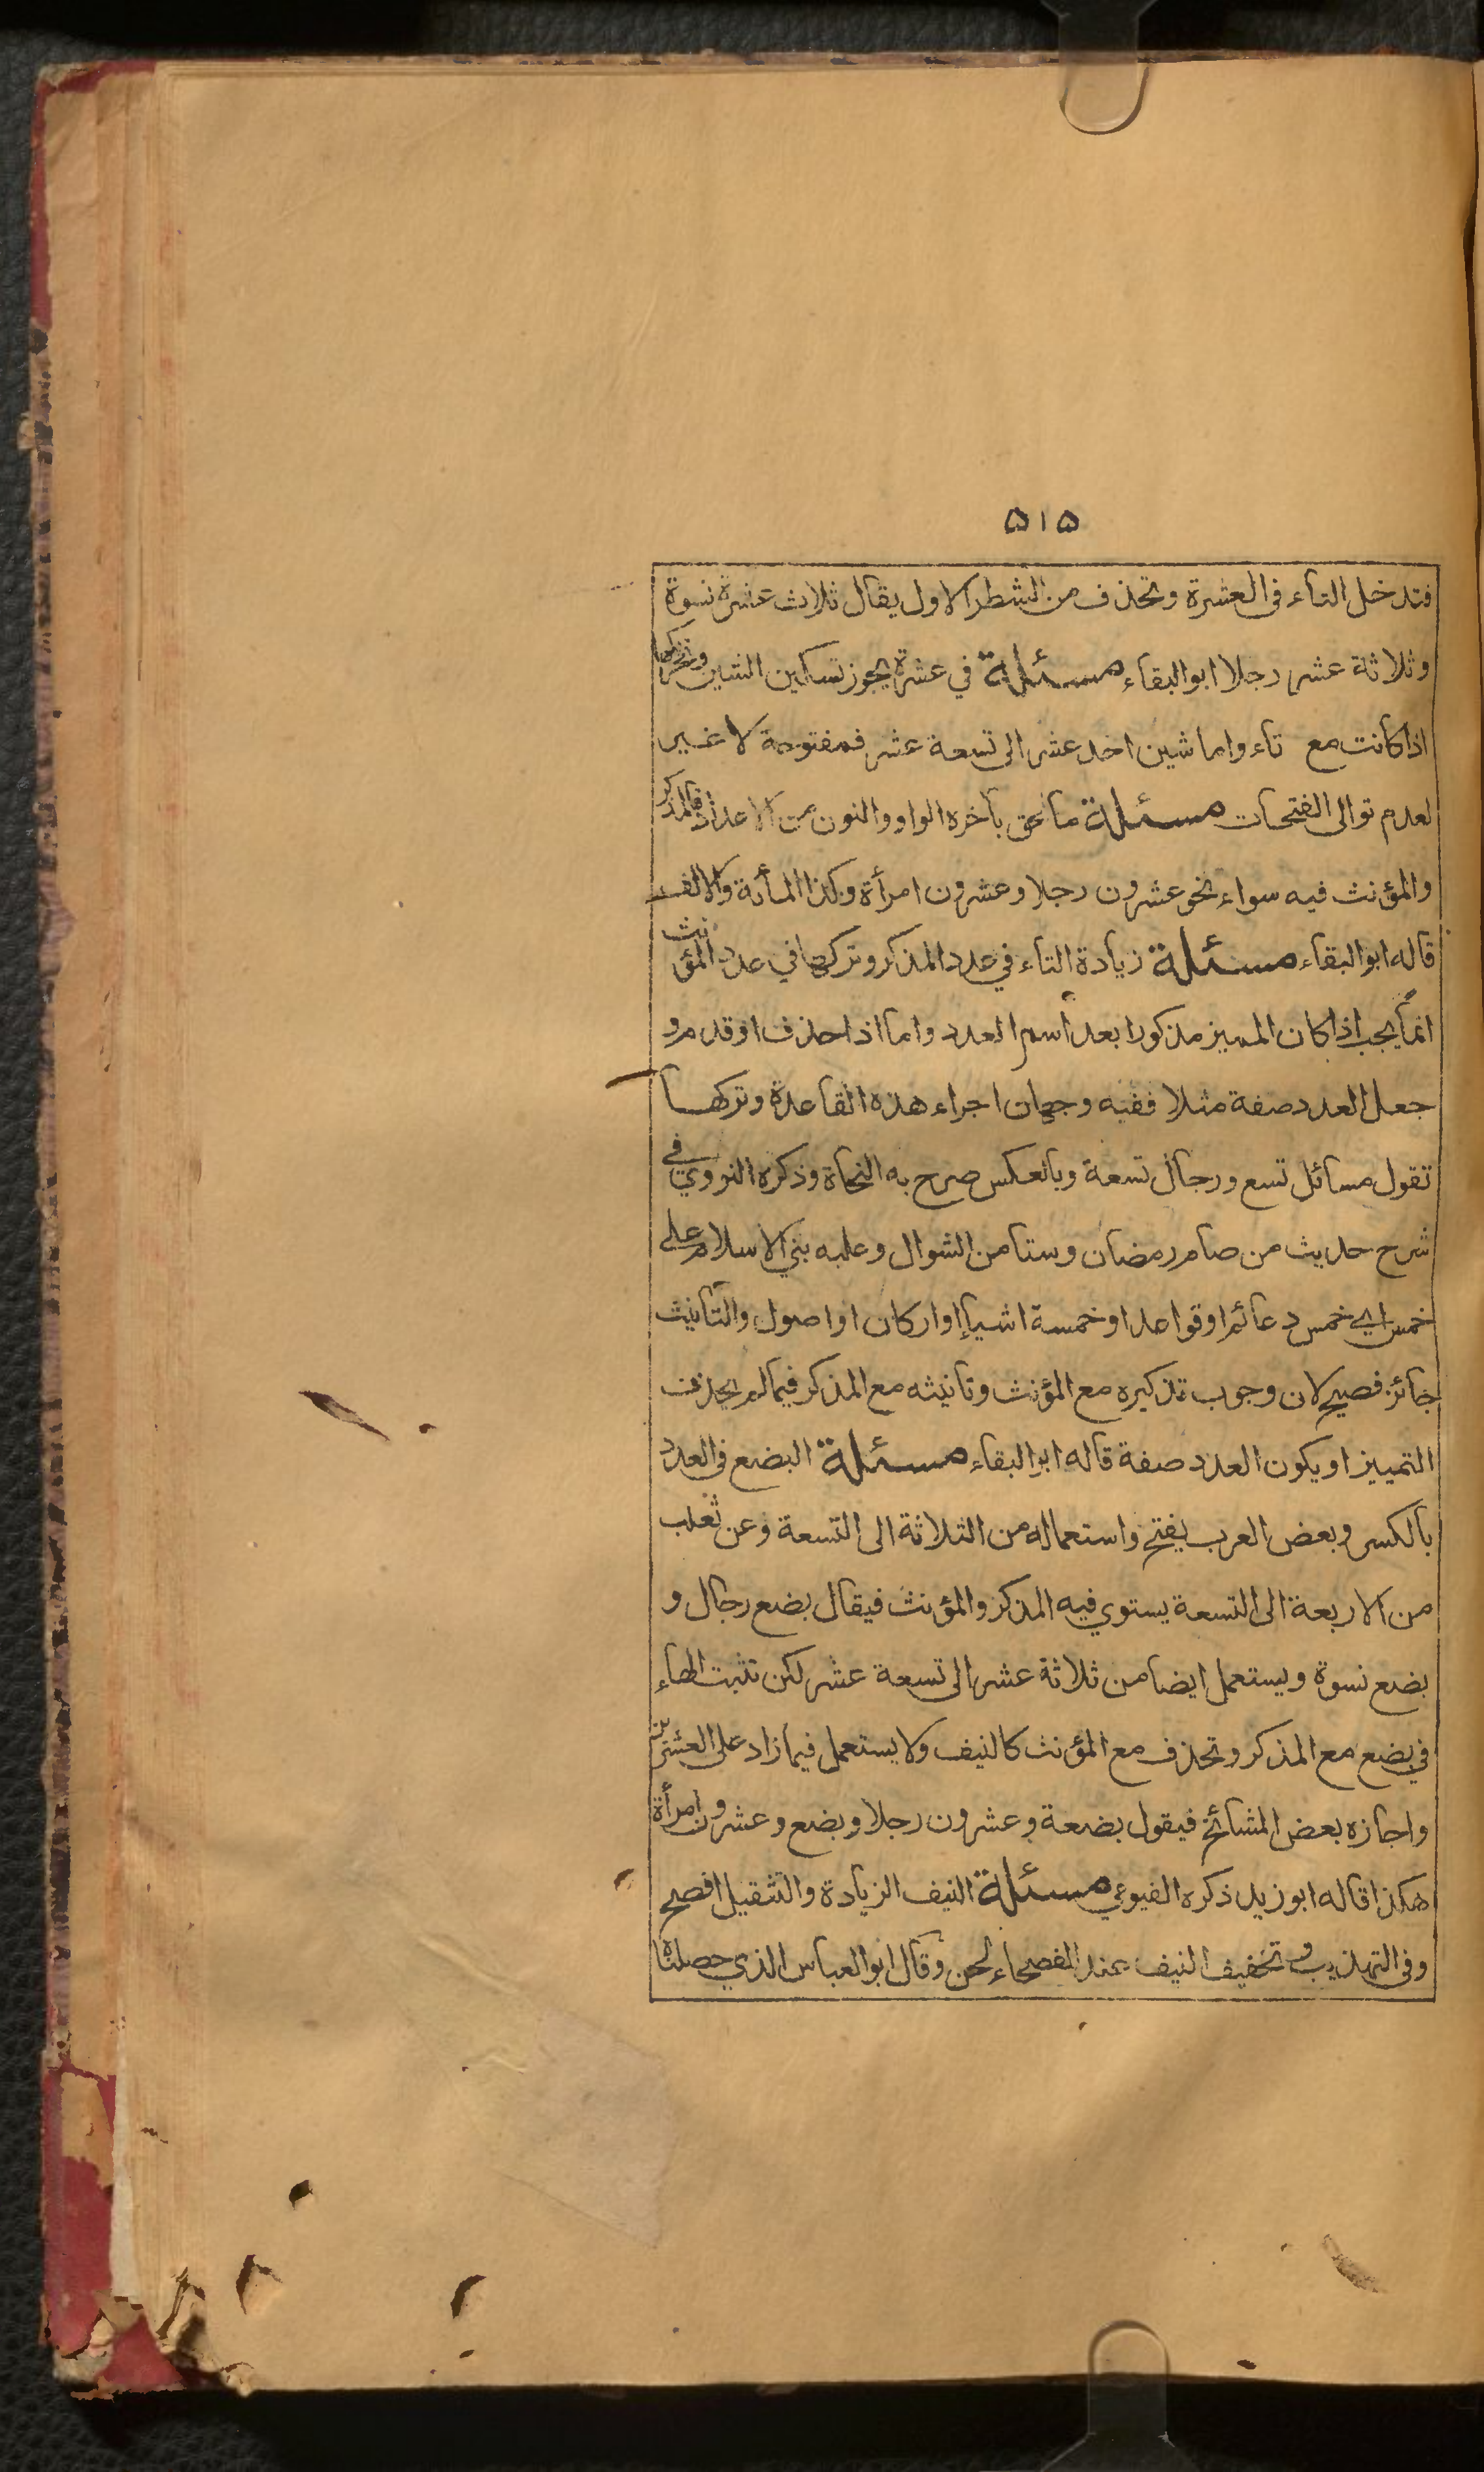 ۵۱۵
فتدخل التاء فى العشرة وتحذف من الشطر الاول يقال ثلاث عشرة نسوة
وثلاثة عشر رجلا ابوالبقاء مسئلة في عشرة يجوز تسكين الشين وتحركها
اذا كانت مع تاء واما شين احد عشر الى تسعة عشر فمفتوحة لا غير
لعدم توالى الفتحات مسئلة ما لحق بآخره الواو والنون من الاعداد فالمذكر
والمؤنث فيه سواء نحو عشرون رجلا وعشرون امرأة وكذا المأئة والالف
قاله ابوالبقاء مسئلة زيادة التاء في عدد المذكر وتركها في عدد المؤنث
انما يجب اذا كان المميز مذكورا بعد اسم العدد واما اذا حذف او قدم و
جعل العدد صفة مثلا ففيه وجهان اجراء هذه القاعدة وتركها
تقول مسائل تسع ورجال تسعة وبالعكس صرح به النحاة وذكره النووي في
شرح حديث من صام رمضان وستا من الشوال وعليه بني الاسلام على
خمس اي خمس دعائم او قواعد او خمسة اشياء او اركان او اصول والتأنيث
جائز فصيح لان وجوب تذكيره مع المؤنث وتانيثه مع المذكر فيما لم يحذف
التمييز او يكون العدد صفة قاله ابوالبقاء مسئلة البضع فى العدد
بالكسر وبعض العرب يفتح واستعماله من الثلاثة الى التسعة وعن ثعلب
من الاربعة الى التسعة يستوي فيه المذكر والمؤنث فيقال بضع رجال و
بضع نسوة ويستعمل ايضا من ثلاثة عشر الى تسعة عشر لكن تثبت الهاء
في بضع مع المذكر وتحذف مع المؤنث كالنيف ولا يستعمل فيما زاد على العشرين
واجازه بعض المشائخ فيقول بضعة وعشرون رجلا وبضع وعشرون امرأة
هكذا قاله ابو زيد ذكره الفيومي مسئلة النيف الزيادة والتثقيل افصح
وفى التهذيب وتخفيف النيف عند الفصحاء لحن وقال ابوالعباس الذي حصلناه